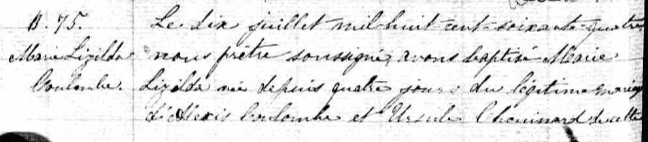 B. 75.
Marie Lizilda
Coulombe.
Le dix juillet mil-huit-cent-soixante-quatre
nous prêtre soussigné, avons baptisé Marie
Lizilda née depuis quatre jours du légitime mariage
d'Alexis Coulombe et Ursule Chouinard de cette